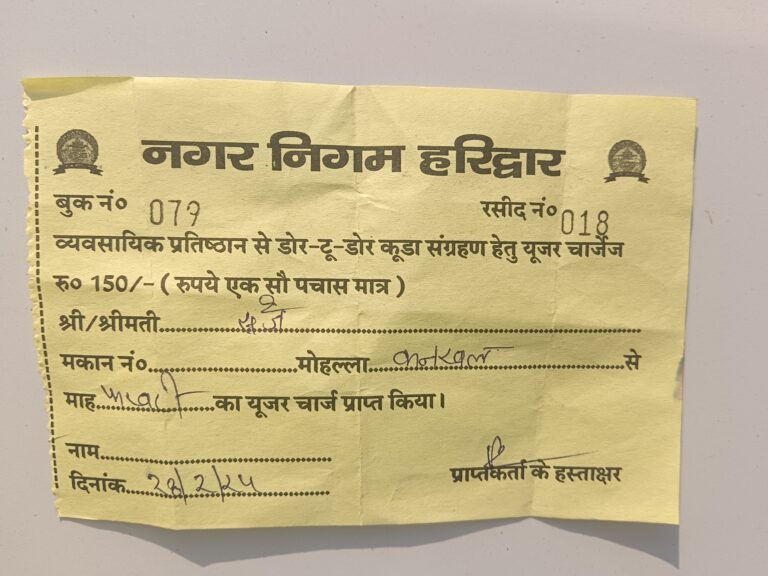 नगर निगम हरिद्वार
बुक नं० 079 रसीद नं० 018
व्यवसायिक प्रतिष्ठान से डोर-टू-डोर कूडा संग्रहण हेतु यूजर चार्जेज
रु० 150/- ( रुपये एक सौ पचास मात्र )
श्री/श्रीमती
मकान नं० मोहल्ला कनखल से
माह का यूजर चार्ज प्राप्त किया।
नाम
दिनांक
प्राप्तकर्ता के हस्ताक्षर